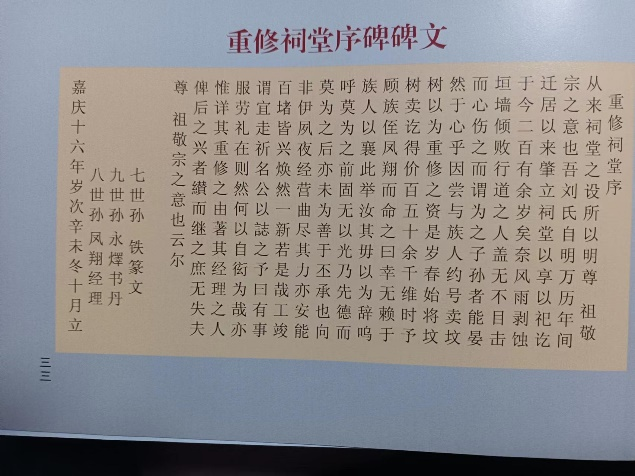 重修祠堂序碑碑文
重修祠堂序
从来祠堂之设所以明尊 祖敬
宗之意也吾刘氏自明万历年间
迁居以来肇立祠堂以享以祀讫
于今二百有余岁矣奈风雨剥蚀
垣墙倾败行道之人盖无不目击
而心伤之而谓为之子孙者能晏
然于心乎因尝与族人约号卖坟
树以为重修之资是岁春始将坟
树卖讫得价百五十余千维时予
顾族侄凤翔而命之曰幸无赖于
族人以襄此举汝其毋以为辞呜
呼莫为之前固无以光乃先德而
莫为之后亦未为善于丕承也向
非伊夙夜经营曲尽其力亦安能
百堵皆兴焕然一新若是哉工竣
谓宜走祈名公以誌之予曰有事
服劳礼在则然何以自衒为哉亦
惟详其重修之由著其经理之人
俾后之兴者纉而继之庶无失夫
尊 祖敬宗之意也云尔
七世孙 铁篆文
九世孙 永燡书丹
八世孙 凤翔经理
嘉庆十六年岁次辛未冬十月立
三三